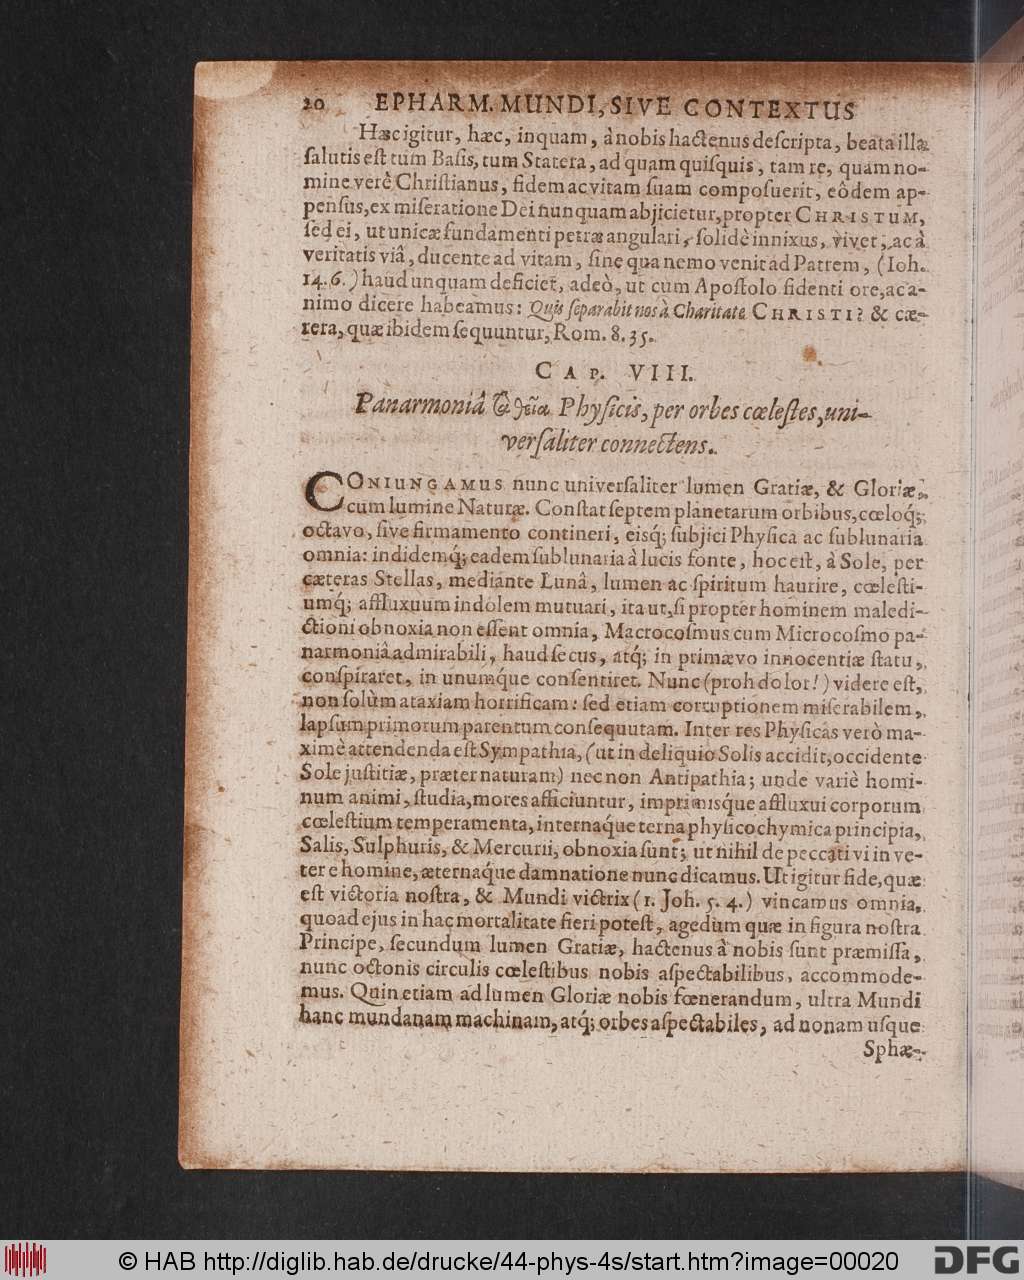 20 EPHARM. MUNDI, SIVE CONTEXTUS
Hæc igitur, hæc, inquam, à nobis hactenus deſcripta, beata illa
ſalutis eſt tum Baſis, tum Statera, ad quam quiſquis, tam re, quàm no-
mine verè Chriſtianus, fidem ac vitam ſuam compoſuerit, eôdem ap-
penſus, ex miſeratione Dei nunquam abjicietur, propter CHRISTUM,
ſed ei, ut unicæ fundamenti petræ angulari, ſolidè innixus, vivet, ac à
veritatis viâ, ducente ad vitam, ſine qua nemo venit ad Patrem, (Ioh.
14. 6.) haud unquam deficiet, adeò, ut cum Apoſtolo fidenti ore, ac a-
nimo dicere habeamus: Quis ſeparabit nos à Charitate CHRISTI? & cæ-
tera, quæ ibidem ſequuntur, Rom. 8. 35.
CAP. VIII.
Panarmoniâ Phyſicis, per orbes cœleſtes, uni-
verſaliter connectens.
CONIUNGAMUS nunc univerſaliter lumen Gratiæ, & Gloriæ,
cum lumine Naturæ. Conſtat ſeptem planetarum orbibus, cœloq́;
octavo, ſive firmamento contineri, eisq́; ſubjici Phyſica ac ſublunaria
omnia: indidemq́; eadem ſublunaria à lucis fonte, hoc eſt, à Sole, per
cæteras Stellas, mediante Lunâ, lumen ac ſpiritum haurire, cœleſti-
umq́; affluxuum indolem mutuari, ita ut, ſi propter hominem maledi-
ctioni obnoxia non eſſent omnia, Macrocoſmus cum Microcoſmo pa-
narmoniâ admirabili, haud ſecus, atq́; in primævo innocentiæ ſtatu,
conſpiraret, in unumq́ue conſentiret. Nunc (proh dolor!) videre eſt,
non ſolùm ataxiam horrificam: ſed etiam corruptionem miſerabilem,
lapſum primorum parentum conſequutam. Inter res Phyſicas verò ma-
ximè attendenda eſt Sympathia, (ut in deliquio Solis accidit, occidente
Sole juſtitiæ, præter naturam) nec non Antipathia; unde variè homi-
num animi, ſtudia, mores afficiuntur, imprimisq́ue affluxui corporum
cœleſtium temperamenta, internaq́ue terna phyſicochymica principia,
Salis, Sulphuris, & Mercurii, obnoxia ſunt; ut nihil de peccati vi in ve-
tere homine, æternaq́ue damnatione nunc dicamus. Ut igitur fide, quæ
eſt victoria noſtra, & Mundi victrix (1. Joh. 5. 4.) vincamus omnia,
quoad ejus in hac mortalitate fieri poteſt, agedum quæ in figura noſtra
Principe, ſecundum lumen Gratiæ, hactenus à nobis ſunt præmiſſa,
nunc octonis circulis cœleſtibus nobis aſpectabilibus, accommode-
mus. Quin etiam ad lumen Gloriæ nobis fœnerandum, ultra Mundi
hanc mundanam machinam, atq́; orbes aſpectabiles, ad nonam uſque
Sphæ-
© HAB http://diglib.hab.de/drucke/44-phys-4s/start.htm?image=00020 DFG